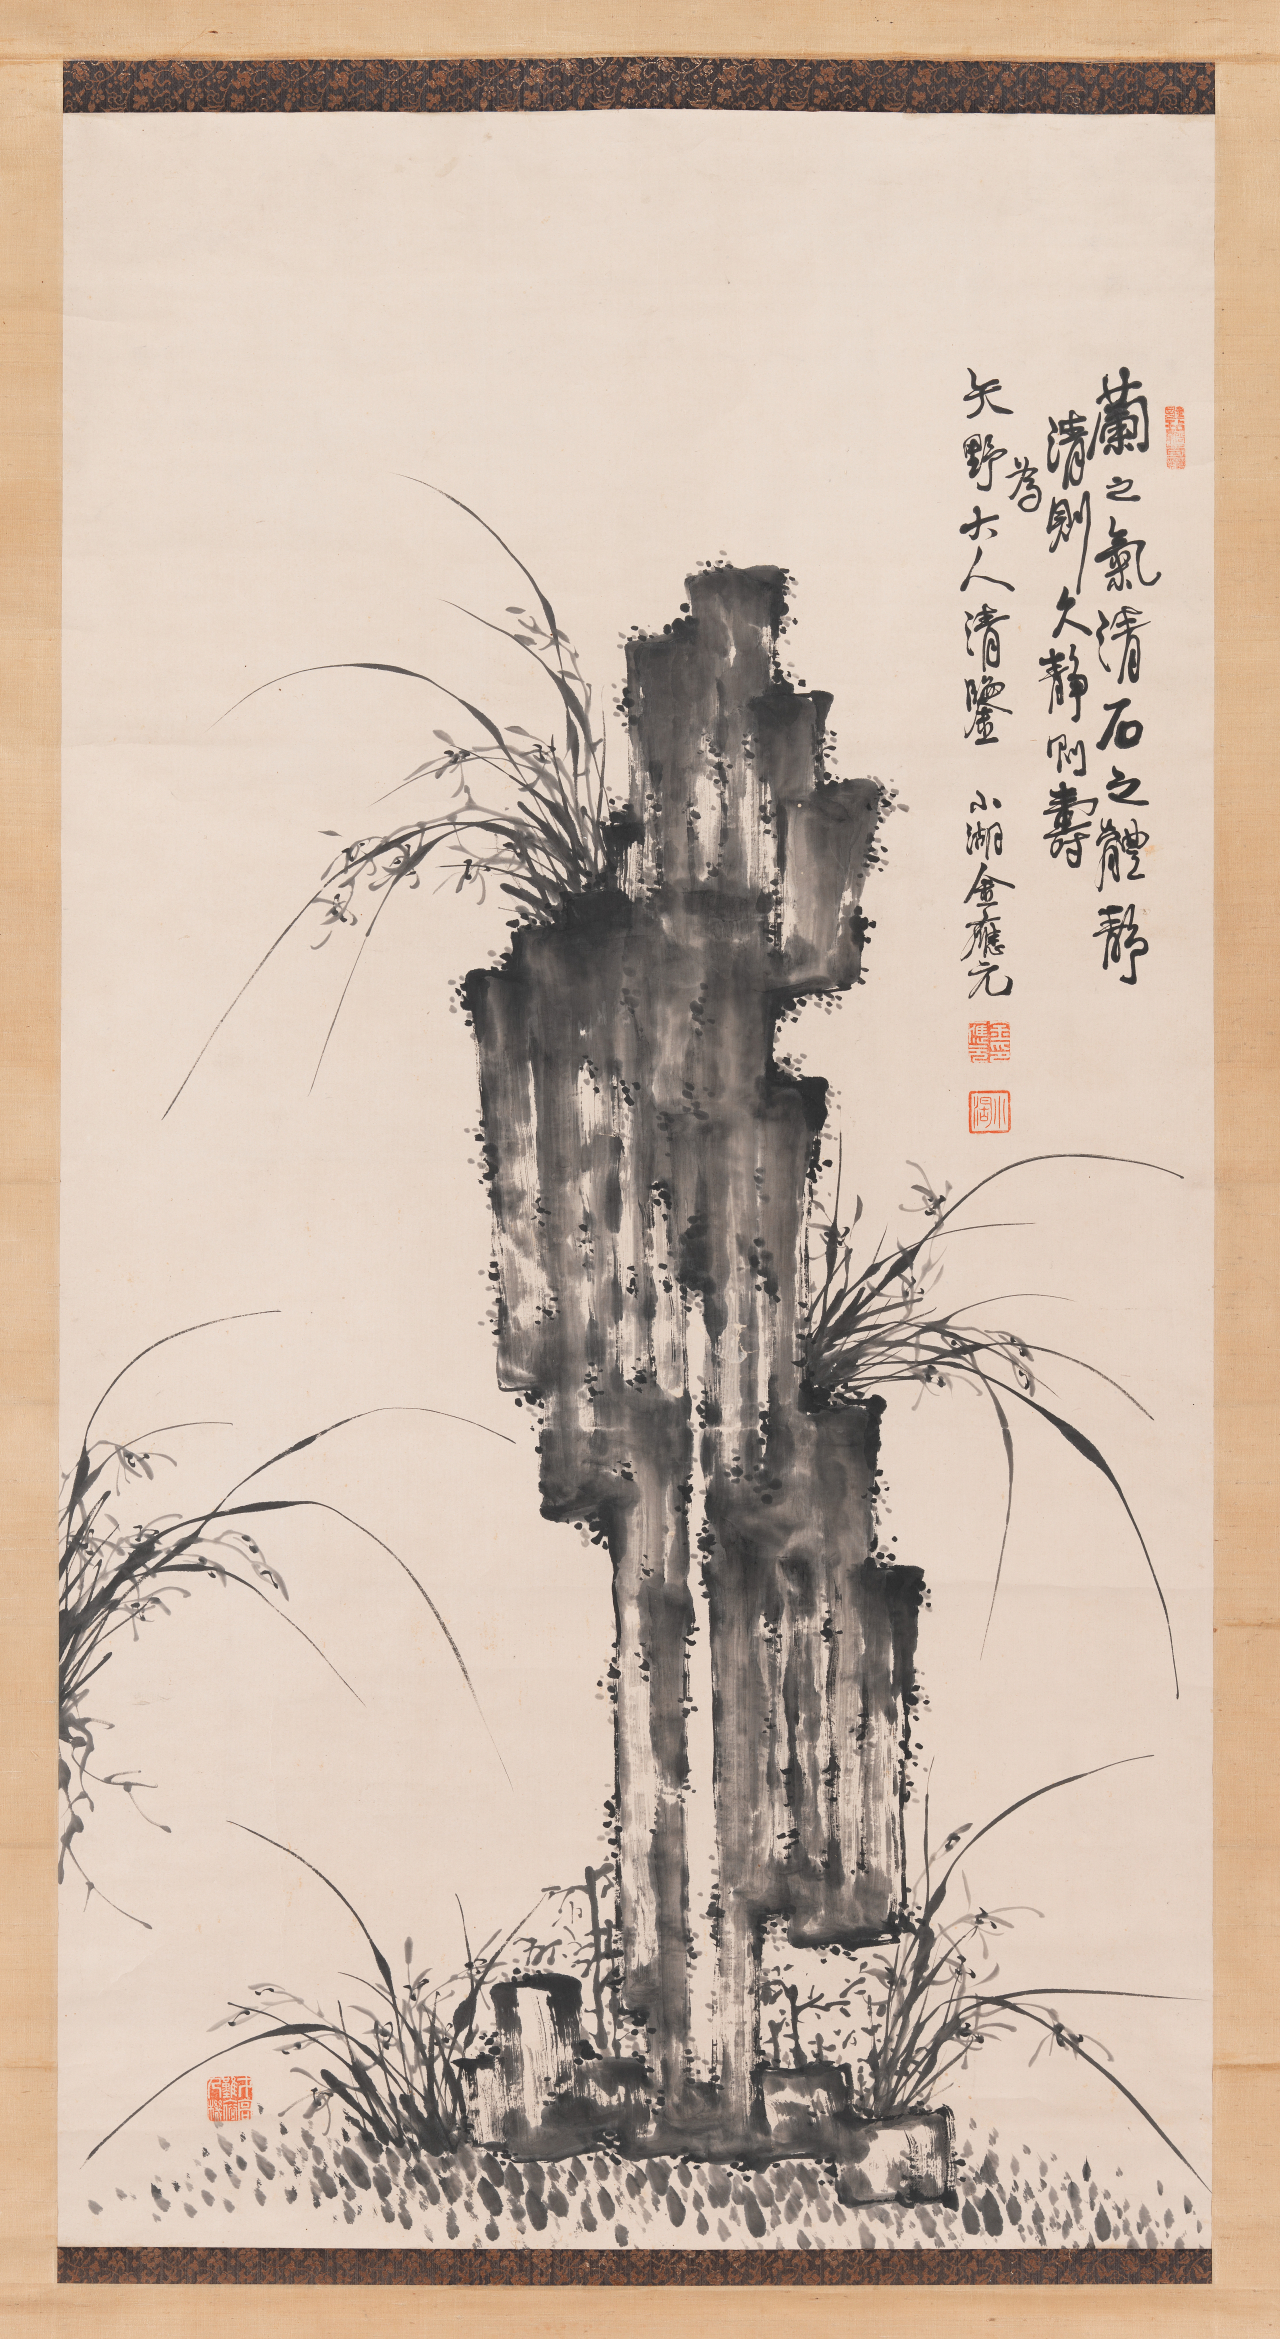 蘭之氣清石之體靜
清則久靜則壽
為
矢野大人清鑒　小湖金應元
金應元印
小湖